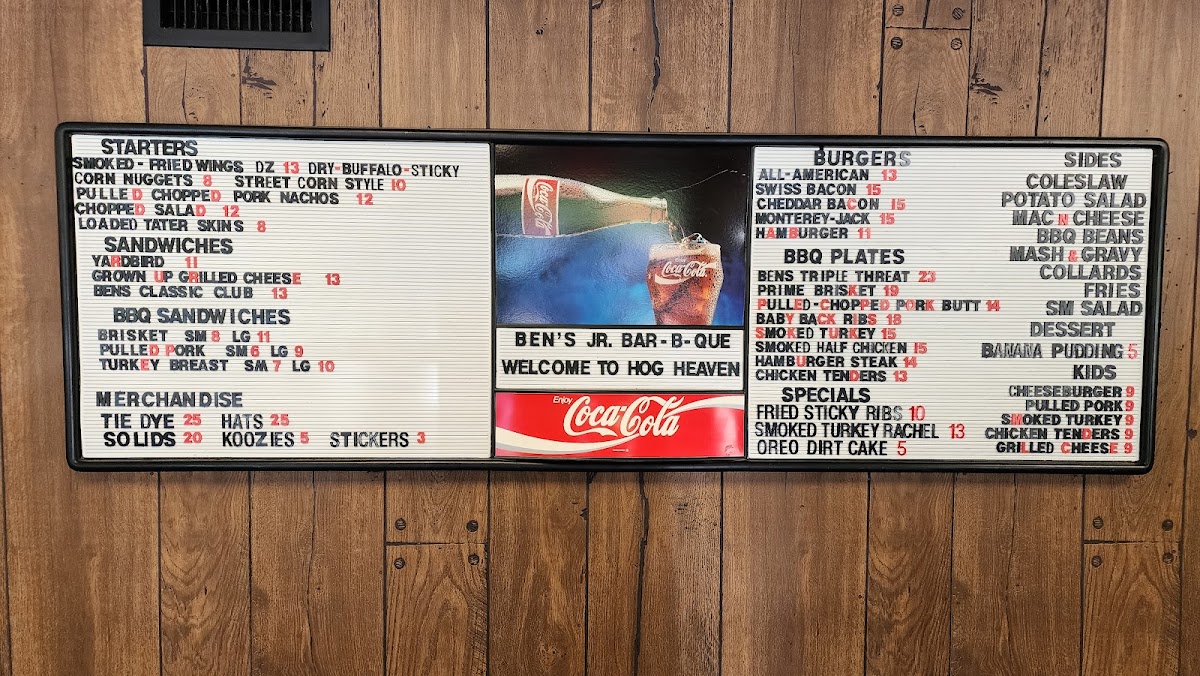 STARTERS
SMOKED - FRIED WINGS DZ 13 DRY-BUFFALO-STICKY
CORN NUGGETS 8 STREET CORN STYLE 10
PULLED CHOPPED PORK NACHOS 12
CHOPPED SALAD 12
LOADED TATER SKINS 8
SANDWICHES
YARDBIRD 11
GROWN UP GRILLED CHEESE 13
BENS CLASSIC CLUB 13
BBQ SANDWICHES
BRISKET SM 8 LG 11
PULLED PORK SM 6 LG 9
TURKEY BREAST SM 7 LG 10
MERCHANDISE
TIE DYE 25 HATS 25
SOLIDS 20 KOOZIES 5 STICKERS 3
Coca-Cola
Coca-Cola
BEN'S JR. BAR-B-QUE
WELCOME TO HOG HEAVEN
Enjoy
Coca-Cola
BURGERS
ALL-AMERICAN 13
SWISS BACON 15
CHEDDAR BACON 15
MONTEREY-JACK 15
HAMBURGER 11
BBQ PLATES
BENS TRIPLE THREAT 23
PRIME BRISKET 19
PULLED-CHOPPED PORK BUTT 14
BABY BACK RIBS 18
SMOKED TURKEY 15
SMOKED HALF CHICKEN 15
HAMBURGER STEAK 14
CHICKEN TENDERS 13
SPECIALS
FRIED STICKY RIBS 10
SMOKED TURKEY RACHEL 13
OREO DIRT CAKE 5
SIDES
COLESLAW
POTATO SALAD
MAC N CHEESE
BBQ BEANS
MASH & GRAVY
COLLARDS
FRIES
SM SALAD
DESSERT
BANANA PUDDING 5
KIDS
CHEESEBURGER 9
PULLED PORK 9
SMOKED TURKEY 9
CHICKEN TENDERS 9
GRILLED CHEESE 9